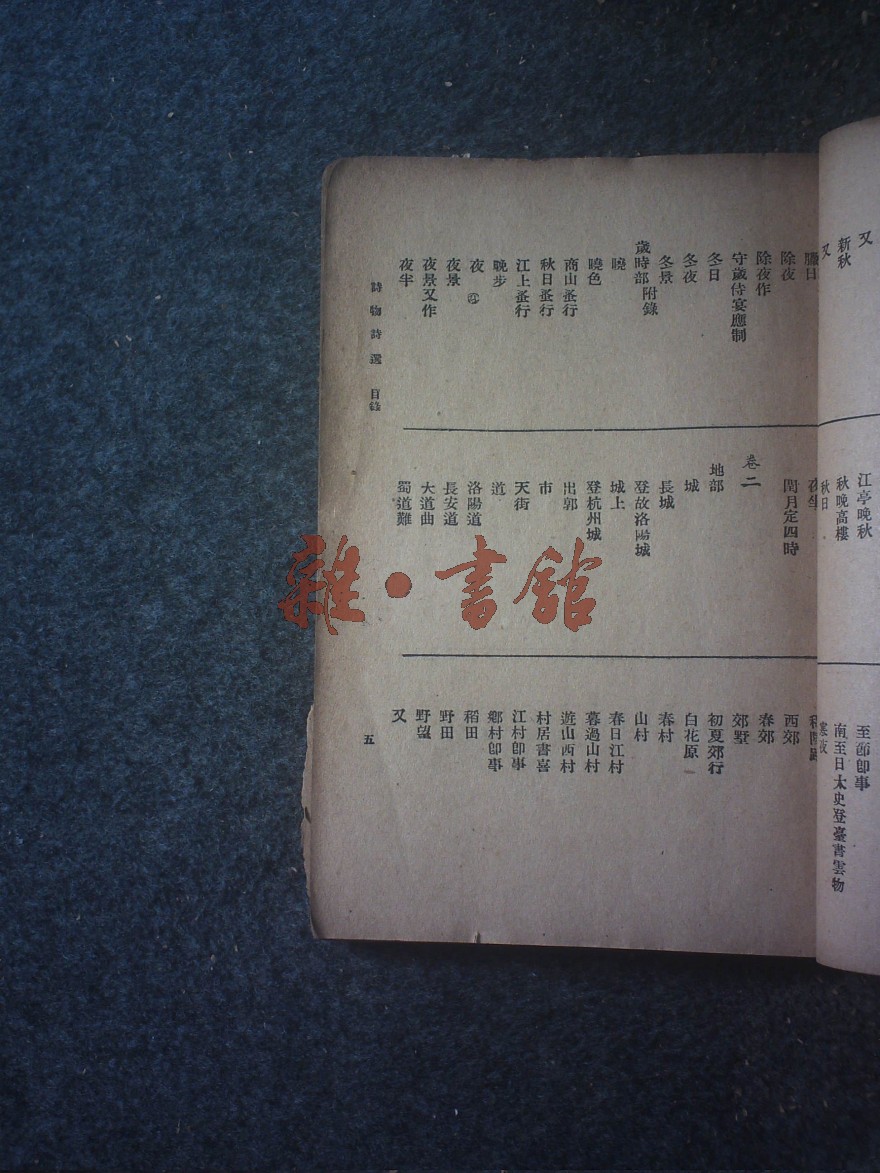 又
新秋
又
臘日
除夜
除夜作
守歲侍宴應制
冬日
冬夜
冬景
歲時部附錄
曉
曉色
商山蚤行
秋日蚤行
江上蚤行
晚步
夜
夜景
夜景又作
夜半
江亭晚秋
秋晚高樓
秋日
夜坐
閏月定四時
卷二
地部
城
長城
登故洛陽城
城上
登杭州城
出郭
市
天街
道
洛陽道
長安道
大道曲
蜀道難
至節即事
南至日太史登臺書雲物
寒夜
西郊
春郊
郊墅
初夏郊行
白花原
春村
山村
春日江村
暮過山村
遊山西村
村居書喜
江村即事
鄉村即事
稻田
野田
野望
又
詩物詩選 目錄
五
雜·書館